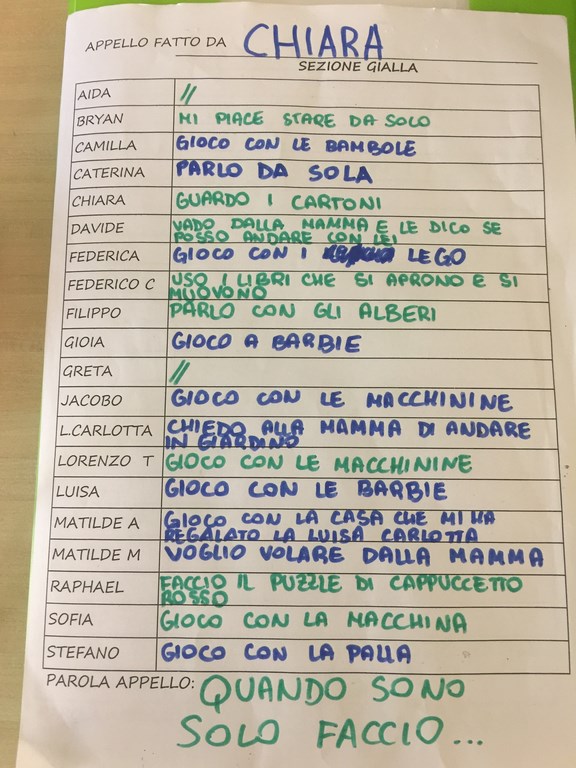 APPELLO FATTO DA CHIARA
SEZIONE GIALLA
AIDA //
BRYAN MI PIACE STARE DA SOLO
CAMILLA GIOCO CON LE BAMBOLE
CATERINA PARLO DA SOLA
CHIARA GUARDO I CARTONI
DAVIDE VADO DALLA MAMMA E LE DICO SE
POSSO ANDARE CON LEI
FEDERICA GIOCO CON I LEGO
FEDERICO C USO I LIBRI CHE SI APRONO E SI
MUOVONO
FILIPPO PARLO CON GLI ALBERI
GIOIA GIOCO A BARBIE
GRETA //
JACOBO GIOCO CON LE MACCHININE
L.CARLOTTA CHIEDO ALLA MAMMA DI ANDARE
IN GIARDINO
LORENZO T GIOCO CON LE MACCHININE
LUISA GIOCO CON LE BARBIE
MATILDE A GIOCO CON LA CASA CHE MI HA
REGALATO LA LUISA CARLOTTA
MATILDE M VOGLIO VOLARE DALLA MAMMA
RAPHAEL FACCIO IL PUZZLE DI CAPPUCCETTO
ROSSO
SOFIA GIOCO CON LA MACCHINA
STEFANO GIOCO CON LA PALLA
PAROLA APPELLO: QUANDO SONO
SOLO FACCIO...